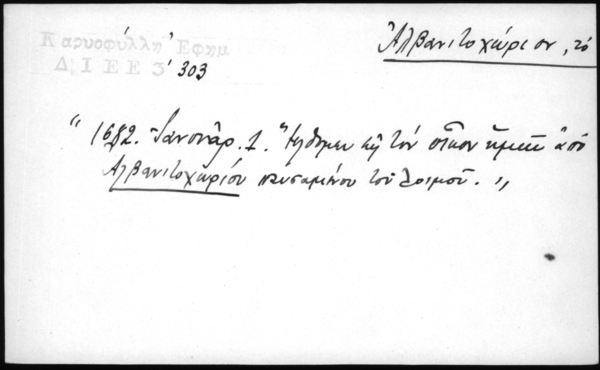 Καρυοφύλλη Ἐφημ
ΔΙΕΕ 3' 303
Ἀλβανιτοχώριον, τό
"1682. Ἰανουάρ. 1. Ἤλθομεν εἰς τὸν οἶκον ἡμῶν ἀπὸ
Ἀλβανιτοχωρίου παυσαμένου τοῦ λοιμοῦ."